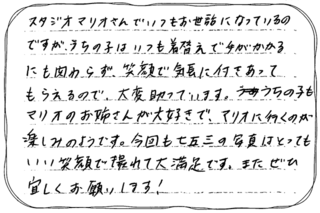 スタジオマリオさんでいつもお世話になっているの
ですが、うちの子はいつも着替えで手がかかる
にも関わらず、笑顔で気長に付きあって
もらえるので、大変助っています。うちの子も
マリオのお姉さんが大好きで、マリオに行くのが
楽しみのようです。今回も七五三の写真はとっても
いい笑顔で撮れて大満足です。またぜひ
宜しくお願いします!